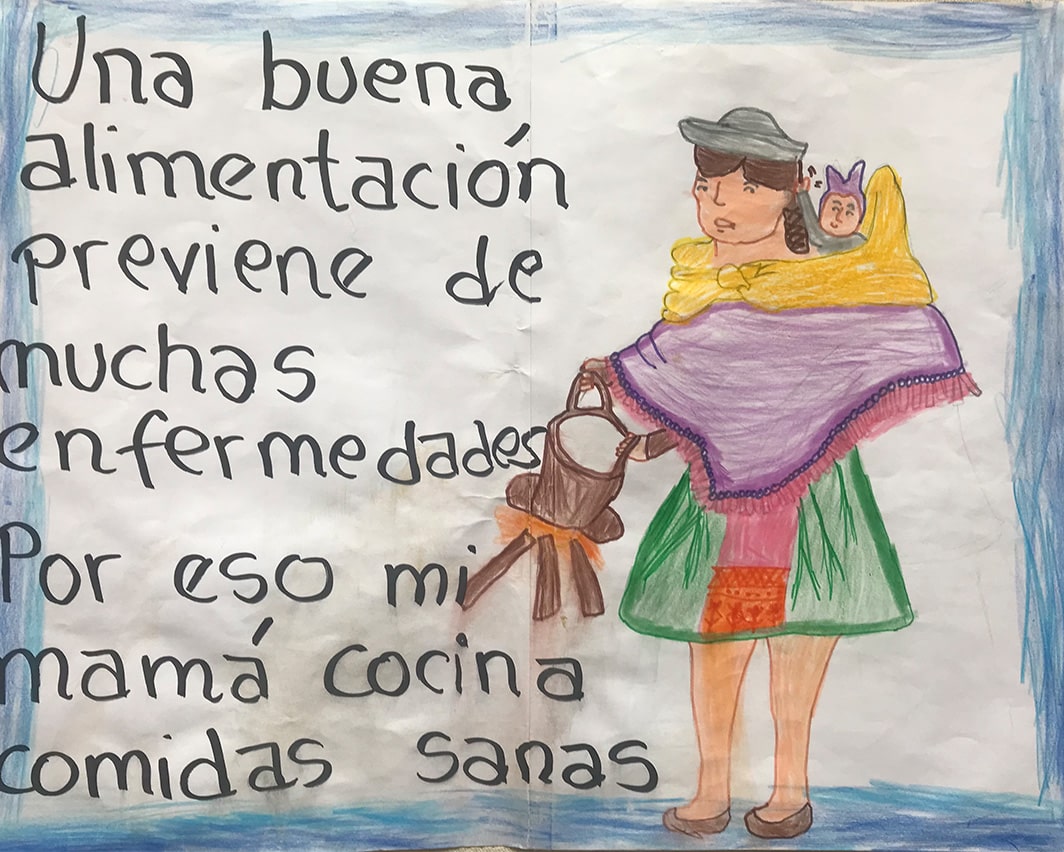 Una buena
alimentación
previene de
muchas
enfermedades
Por eso mi
mamá cocina
comidas sanas